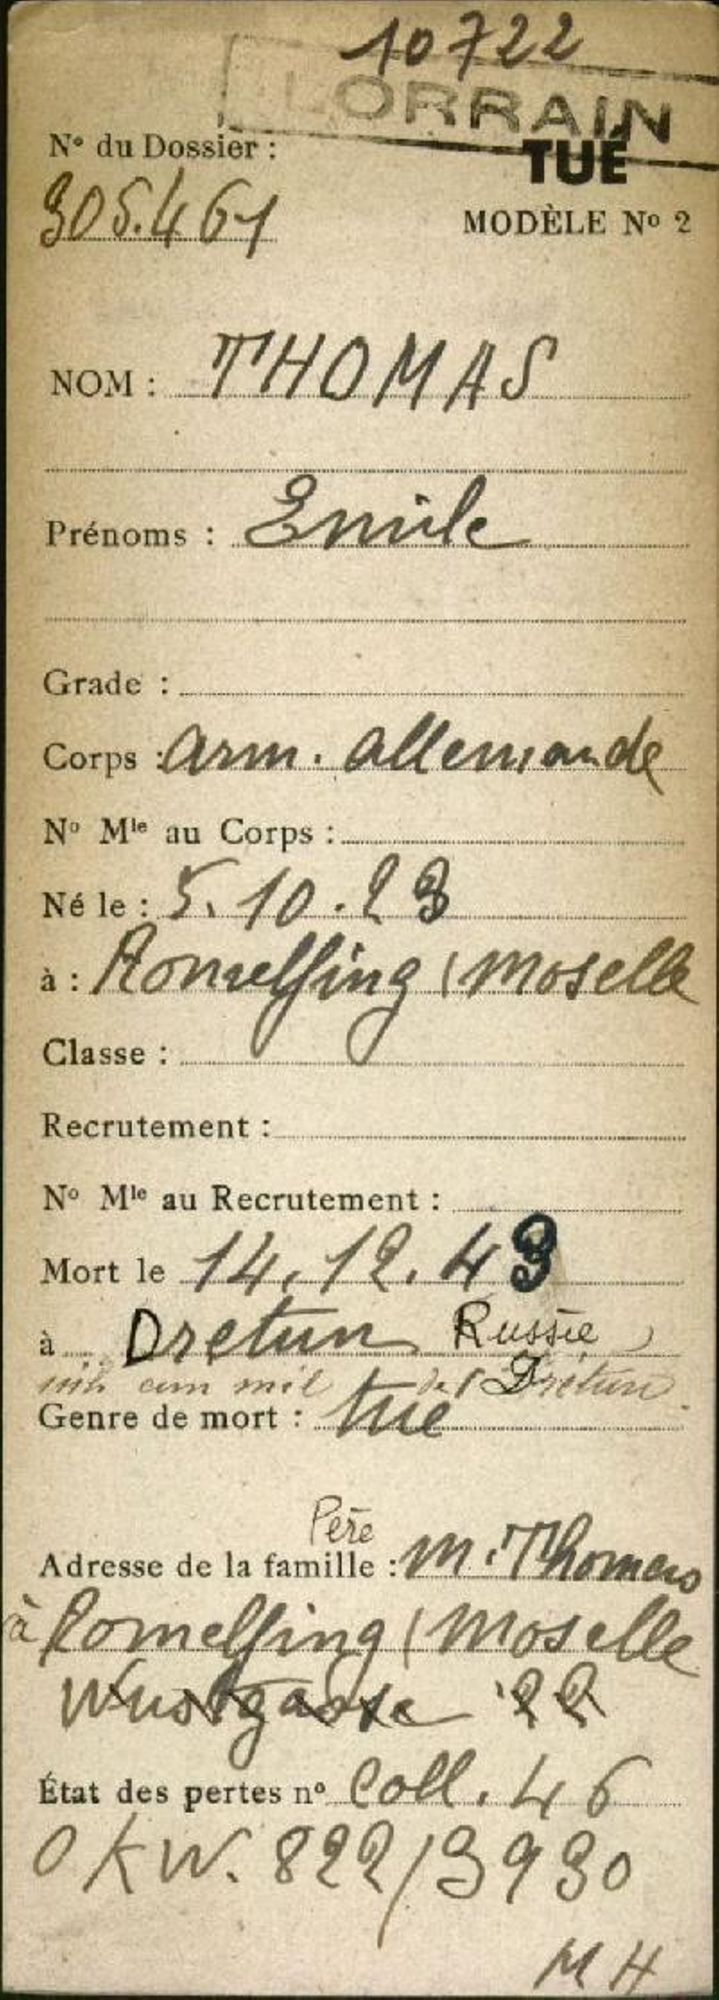 10722
LORRAIN
N° du Dossier :
TUÉ
305.461
MODÈLE N° 2
NOM : THOMAS
Prénoms : Emile
Grade :
Corps : arm. allemande
N° Mle au Corps :
Né le : 5.10.23
à : Romelfing (Moselle
Classe :
Recrutement :
N° Mle au Recrutement :
Mort le 14.12.43
à Dretun Russie)
cim mil de Dretun
Genre de mort : tué
Père
Adresse de la famille : M. Thomas
à Romelfing (Moselle
Wustgasse 22
État des pertes n° Coll. 46
OKW. 822/3930
MH